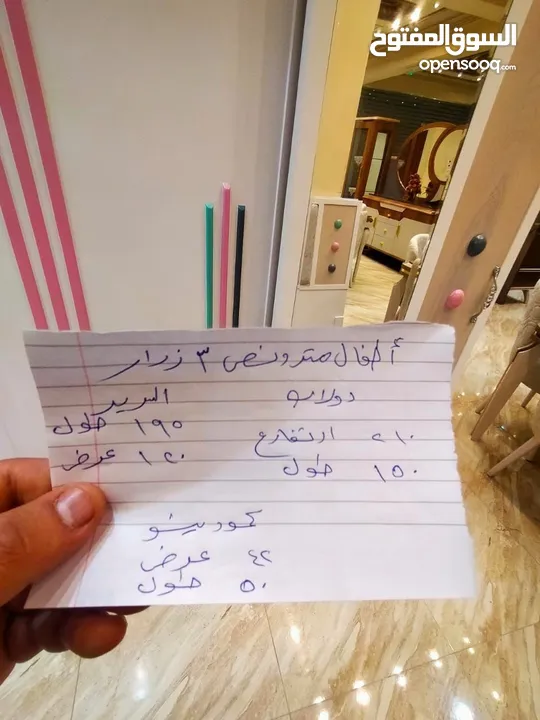 السوق المفتوح
opensooq.com
أطفال متر ونص ٣ زرار
دولاب
٢١٠ ارتفاع
١٥٠ طول
السرير
١٩٥ طول
١٢٠ عرض
كمودينو
٤٢ عرض
٥٠ طول